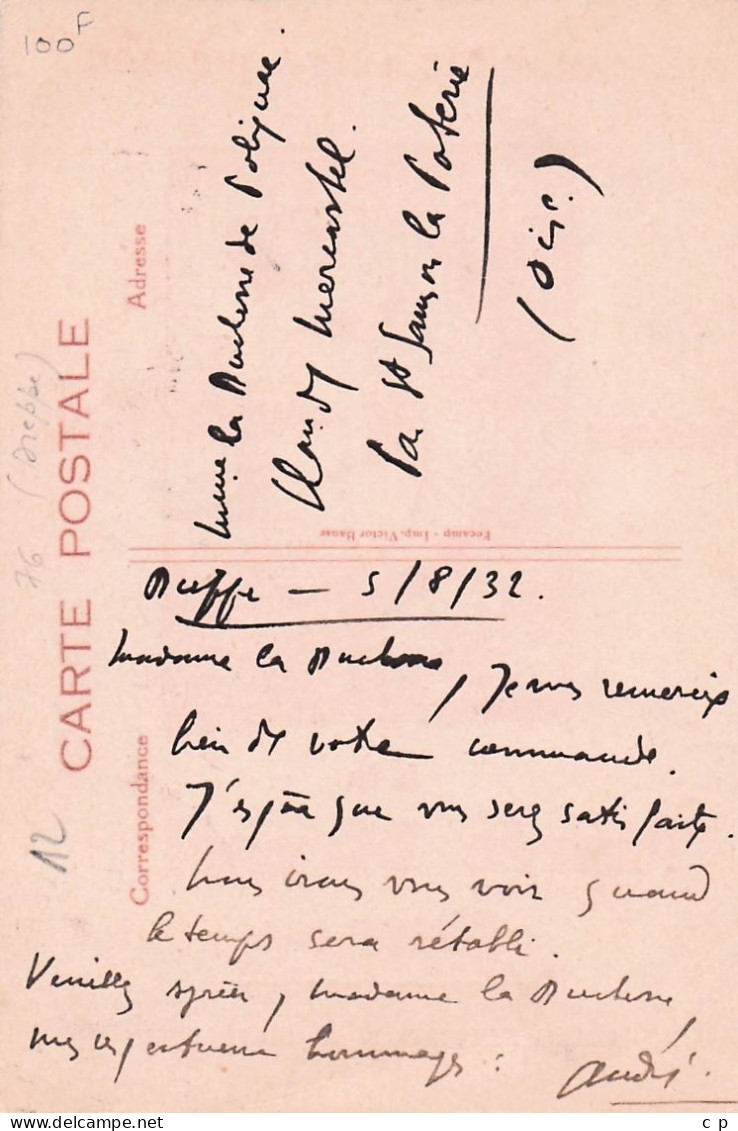 100F
CARTE POSTALE
76 (Dieppe)
12
Correspondance
Adresse
Mme la Duchesse de Polignac.
Mercastel.
Par St Samson la Poterie
(Oise.)
Fecamp - Imp. Victor Banse
Dieppe — 5/8/32.
Madame la Duchesse, Je vous remercie
bien de votre commande.
J'espère que vous serez satisfaite.
Nous irons vous voir quand
le temps sera rétabli.
Veuillez agréer, Madame la Duchesse,
mes respectueux hommages :
André.
c p